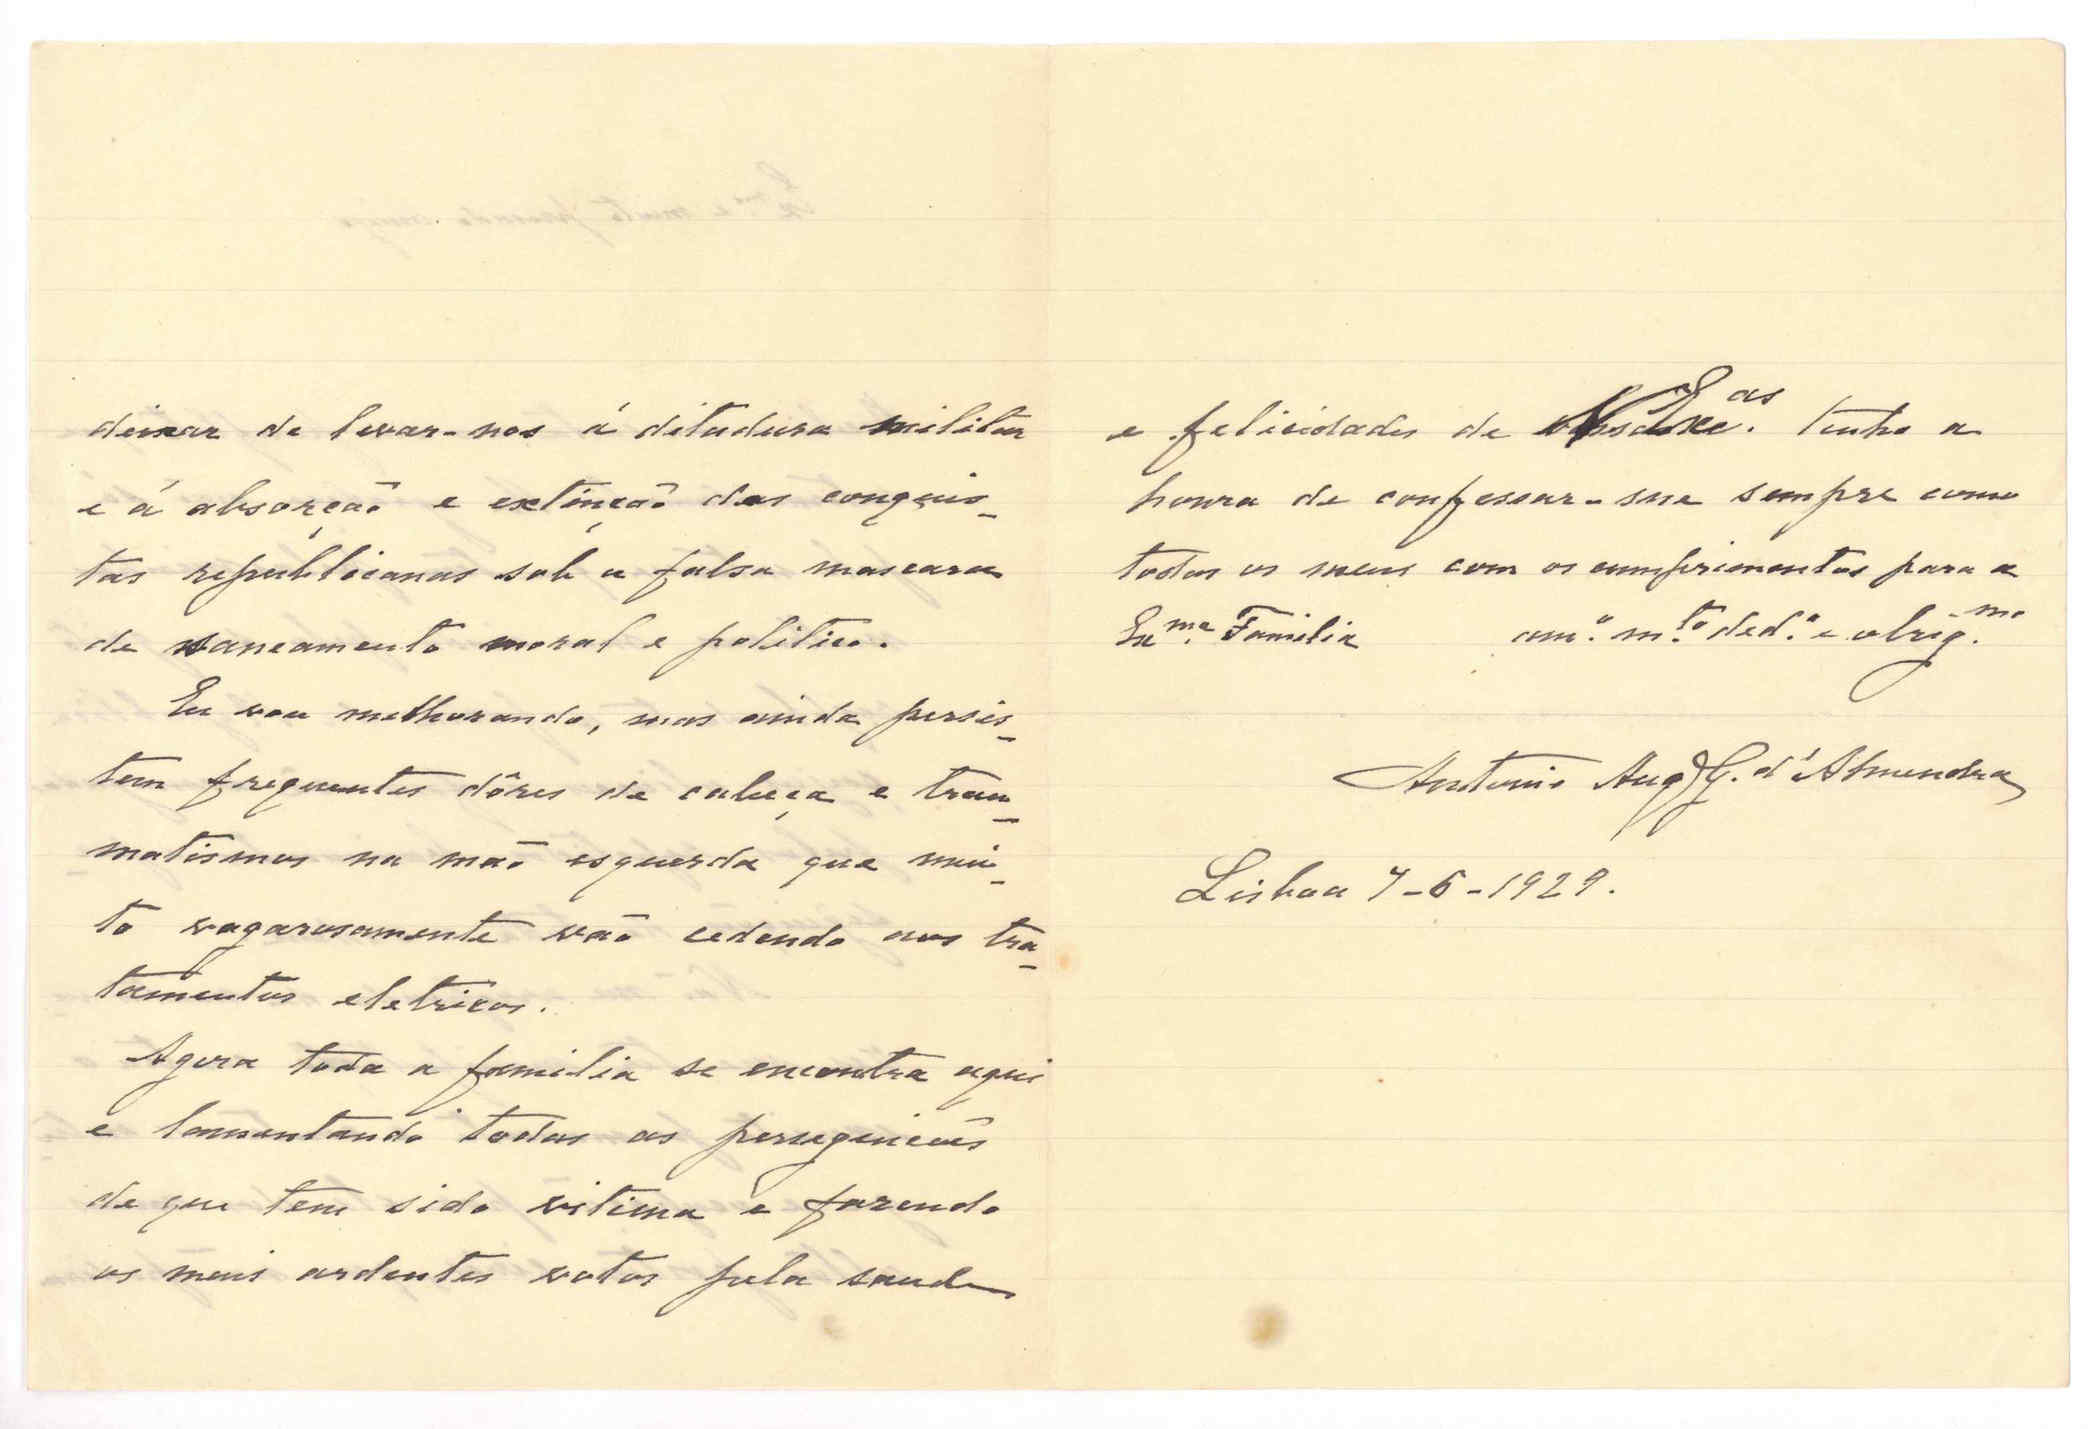 deixar de levar-nos á ditadura militar
e á absorção e extinção das conquis-
tas repúblicanas sob a falsa mascara
de saneamento moral e politico.
Eu vou melhorando, mas ainda persis-
tem frequentes dôres de cabeça e trau-
matismos na mão esquerda que mui-
to vagarosamente vão cedendo aos tra-
tamentos eletricos.
Agora toda a familia se encontra aqui
e lamentando todas as perseguicões
de que tem sido vitima e fazendo
os mais ardentes votos pela saude
e felicidades de Exas. tenho a
honra de confessar-me sempre como
todos os meus com os cumprimentos para a
Exma. Familia amo. mto. dedo. e obrigmo.
Antonio Aug G. d'Almendra
Lisboa 7-6-1929.